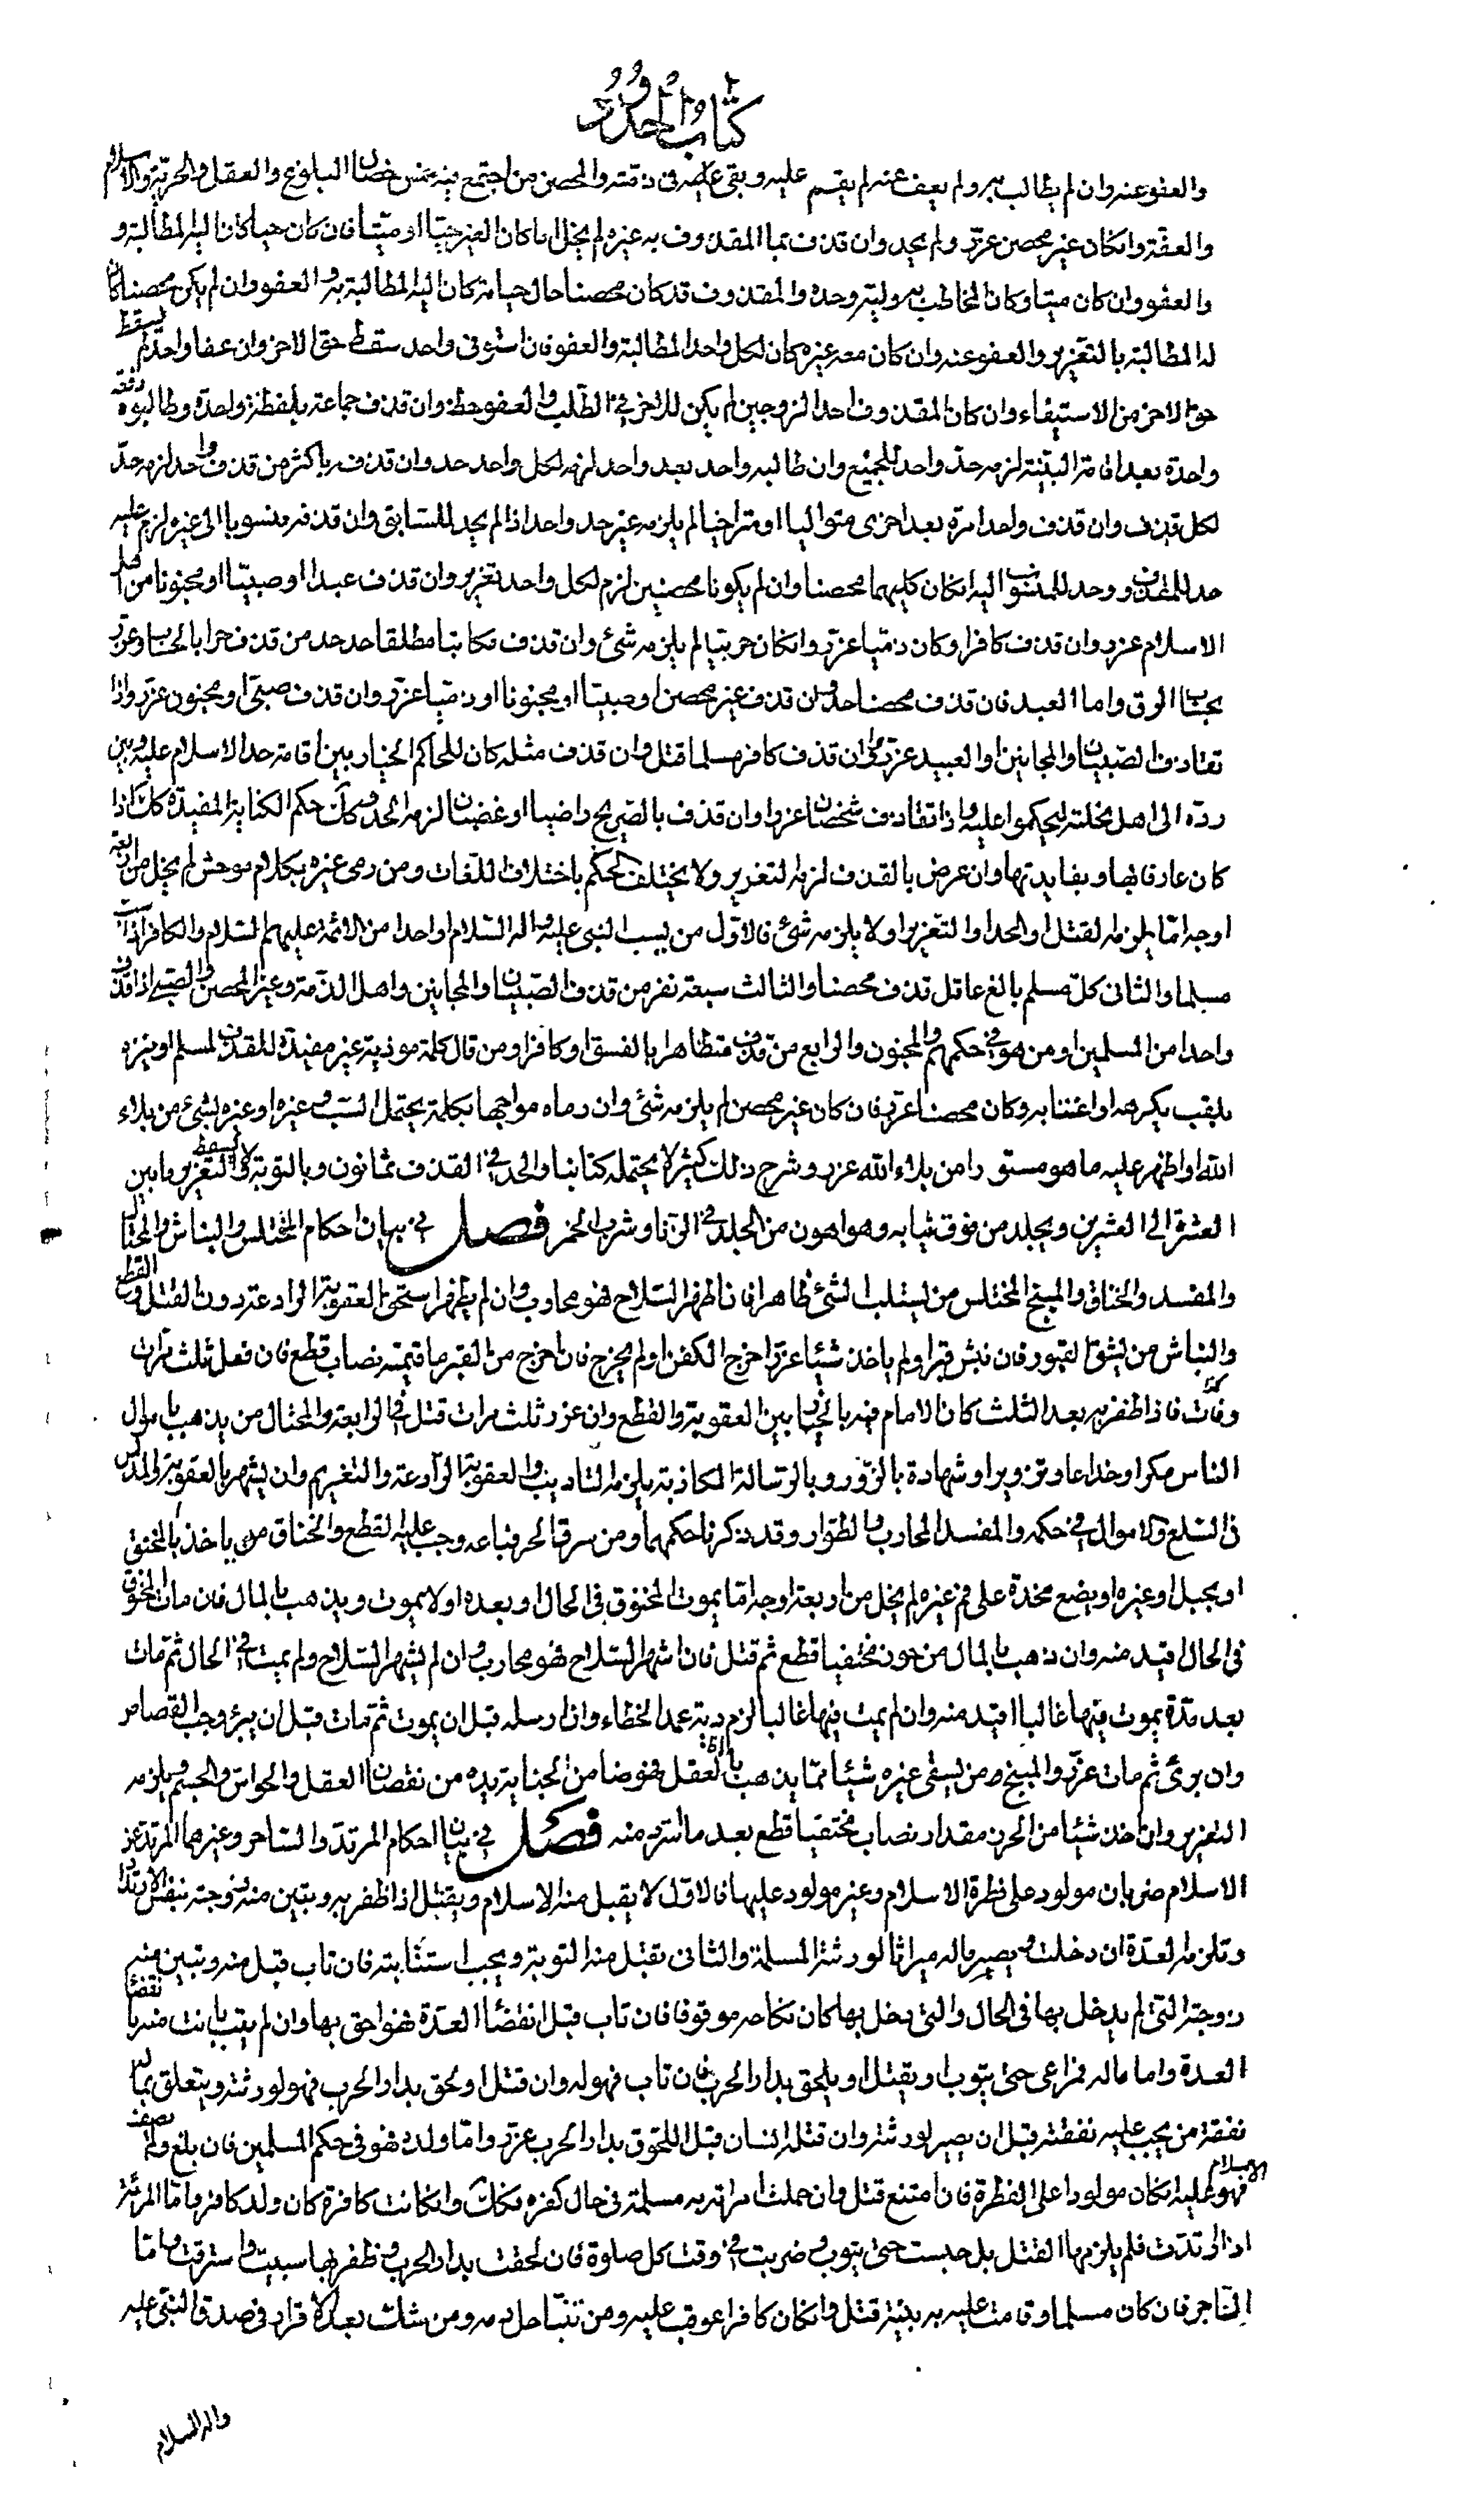 كتاب الحدود
والعفو عنه وان لم يطالب به ولم يعف عنه لم يقم عليه وبقى عليه فى ذمته والمحصن من اجتمع فيه خمس خصال البلوغ والعقل والحرية والاسلام
والعفة وان كان غير محصن عزر ولم يحد وان قذف بما المقذوف به غيره لم يخل اما كان الغير حيا او ميتا فان كان حيا كان اليه المطالبة و
والعفو وان كان ميتا وكان المخاطب به وليه وحده والمقذوف قد كان محصنا حال حياته كان اليه المطالبة به والعفو وان لم يكن محصنا كان
له المطالبة بالتعزير والعفو عنه وان كان معه غيره كان لكل واحد المطالبة والعفو فان استوفى واحد سقط حق الاخر وان عفا واحد لم يسقط
حق الاخر من الاستيفاء وان كان المقذوف احد الزوجين لم يكن للاخر فى الطلب والعفو حظ وان قذف جماعة بلفظة واحدة وطالبوه دفعة
واحدة بعد اقامة البينة لزمه حد واحد للجميع وان طالبه واحد بعد واحد لزمه لكل واحد حد وان قذف باكثر من قذف واحد لزمه حد
لكل قذف وان قذف واحدا مرة بعد اخرى متواليا او متراخيا لم يلزمه غير حد واحد اذا لم يحد للسابق وان قذفه منسوبا الى غيره لزم عليه
حد للمقذوف وحد للمنسوب اليه ان كان كليهما محصنا وان لم يكونا محصنين لزم لكل واحد تعزير وان قذف عبدا او صبيا او مجنونا من اهل
الاسلام عزر وان قذف كافرا وكان ذميا عزر وان كان حربيا لم يلزمه شئ وان قذف مكاتبا مطلقا حد حد من قذف حرا بالحساب وعزر
بحساب الرق واما العبد فان قذف محصنا حد وان قذف غير محصن او صبيا او مجنونا او ذميا عزر وان قذف صبى او مجنون عزر واذا
تقاذف الصبيان والمجانين والعبيد عزروا وان قذف كافر مسلما قتل وان قذف مثله كان للحاكم الخيار بين اقامة حد الاسلام عليه وبين
رده الى اهل نحلته ليحكموا عليه واذا تقاذف شخصان عزرا وان قذف بالصريح راضيا او غضبان لزمه الحد وكذلك حكم الكناية المفيدة كذلك اذا
كان عارفا بها وبفايدتها وان عرض بالقذف لزمه التعزير ولا يختلف الحكم باختلاف اللغات ومن رمى غيره بكلام موحش لم يخل من اربعة
اوجه اما يلزمه القتل او الحد او التعزير او لا يلزمه شئ فالاول من يسب النبى عليه واله السلام او احدا من الائمة عليهم السلام والكافر اذا سب
مسلما والثانى كل مسلم بالغ عاقل قذف محصنا والثالث سبعة نفر من قذف الصبيان والمجانين واهل الذمة وغير المحصن والصبى اذا قذف
واحدا من المسلمين او من هو فى حكمهم والمجنون والرابع من قذف متظاهرا بالفسق او كافرا ومن قال كلمة موذية غير مفيدة للقذف لمسلم او نبزه
بلقب يكرهه او اغتابه وكان محصنا عزر فان كان غير محصن لم يلزمه شئ وان رماه مواجها بكلمة يحتمل السب وغيره او غيره بشئ من بلاء
الله او اظهر عليه ما هو مستور من بلاء الله عزر وشرح ذلك كثير لا يحتمله كتابنا والحد فى القذف ثمانون وبالتوبة لا يسقط والتعزير ما بين
العشرة الى العشرين ويجلد من فوق ثيابه وهو اهون من الجلد فى الزنا وشرب الخمر فصل فى بيان احكام المختلس والنباش والمحتال
والمفسد والخناق والمبنج المختلس من يستلب الشئ ظاهرا فان اظهر السلاح فهو محارب وان لم يظهر استحق العقوبة الرادعة دون القتل والقطع
والنباش من ينبش القبور فان نبش قبرا ولم ياخذ شيئا عزر اخرج الكفن او لم يخرج فان اخرج من القبر ما قيمته نصاب قطع فان فعل ثلث مرات
وفات فاذا ظفر به بعد الثلث كان الامام فيه بالخيار بين العقوبة والقطع وان عزر ثلث مرات قتل فى الرابعة والمحتال من يذهب باموال
الناس مكرا وخداعا وتزويرا وشهادة بالزور وبالرسالة الكاذبة يلزمه التاديب والعقوبة الرادعة والتغريم وان يشهر بالعقوبة والمدلس
فى السلع والاموال فى حكمه والمفسد المحارب والطرار وقد ذكرنا حكمهما ومن سرق الحر فباعه وجب عليه القطع والخناق من ياخذ بالمخنق
او بحبل او غيره او يضع مخدة على فم غيره لم يخل من اربعة اوجه اما يموت المخنوق فى الحال او بعده او لا يموت ويذهب بالمال فان مات المخنوق
فى الحال اقيد منه وان ذهب بالمال من حرز مختفيا قطع ثم قتل فان اشهر السلاح فهو محارب وان لم يشهر السلاح ولم يمت فى الحال ثم مات
بعد مدة يموت فيها غالبا اقيد منه وان لم يمت فيها غالبا لزم دية عمد الخطاء وان ارسله قبل ان يموت ثم مات قبل ان يبرء وجب القصاص
وان برئ ثم مات عزر والمبنج من يسقى غيره شيئا مما يذهب بالعقل فهو ضامن لجناية يده من نقصان العقل والحواس والجسم ويلزمه
التعزير وان اخذ شيئا من الحرز مقدار نصاب مختفيا قطع بعد ما استرد منه فصل فى بيان احكام المرتد والساحر وغيرهما المرتد عن
الاسلام ضربان مولود على فطرة الاسلام وغير مولود عليها فالاول لا يقبل منه الاسلام ويقتل اذا ظفر به وتبين منه زوجته بنفس الارتداد
وتلزمه العدة ان دخلت ويصير ماله ميراثا لورثته المسلمة والثانى تقبل منه التوبة ويجب استتابته فان تاب قبل منه وتبين منه
زوجته التى لم يدخل بها فى الحال والتى دخل بها كان نكاحه موقوفا فان تاب قبل انقضاء العدة فهو احق بها وان لم يتب بانت منه بانقضاء
العدة واما ماله فمراعى حتى يتوب او يقتل او يلحق بدار الحرب فان تاب فهو له وان قتل او لحق بدار الحرب فهو لورثته ويتعلق بماله
نفقة من يجب عليه نفقته قبل ان يصير لورثته وان قتله انسان قبل اللحوق بدار الحرب عزر واما ولده فهو فى حكم المسلمين فان بلغ ولم يصف الاسلام
فهو عليه ان كان مولودا على الفطرة فان امتنع قتل وان حملت امراته به مسلمة فى حال كفره فكذلك وان كانت كافرة كان ولد كافر واما المرءة
اذا ارتدت فلم يلزمها القتل بل حبست حتى يتوب وضربت فى وقت كل صلوة فان لحقت بدار الحرب وظفر بها سبيت واسترقت واما
الساحر فان كان مسلما وقامت عليه به بينة قتل وان كان كافرا عوقب عليه ومن تنبأ حل دمه ومن شك بعد الاقرار فى صدق النبى عليه
واله السلام